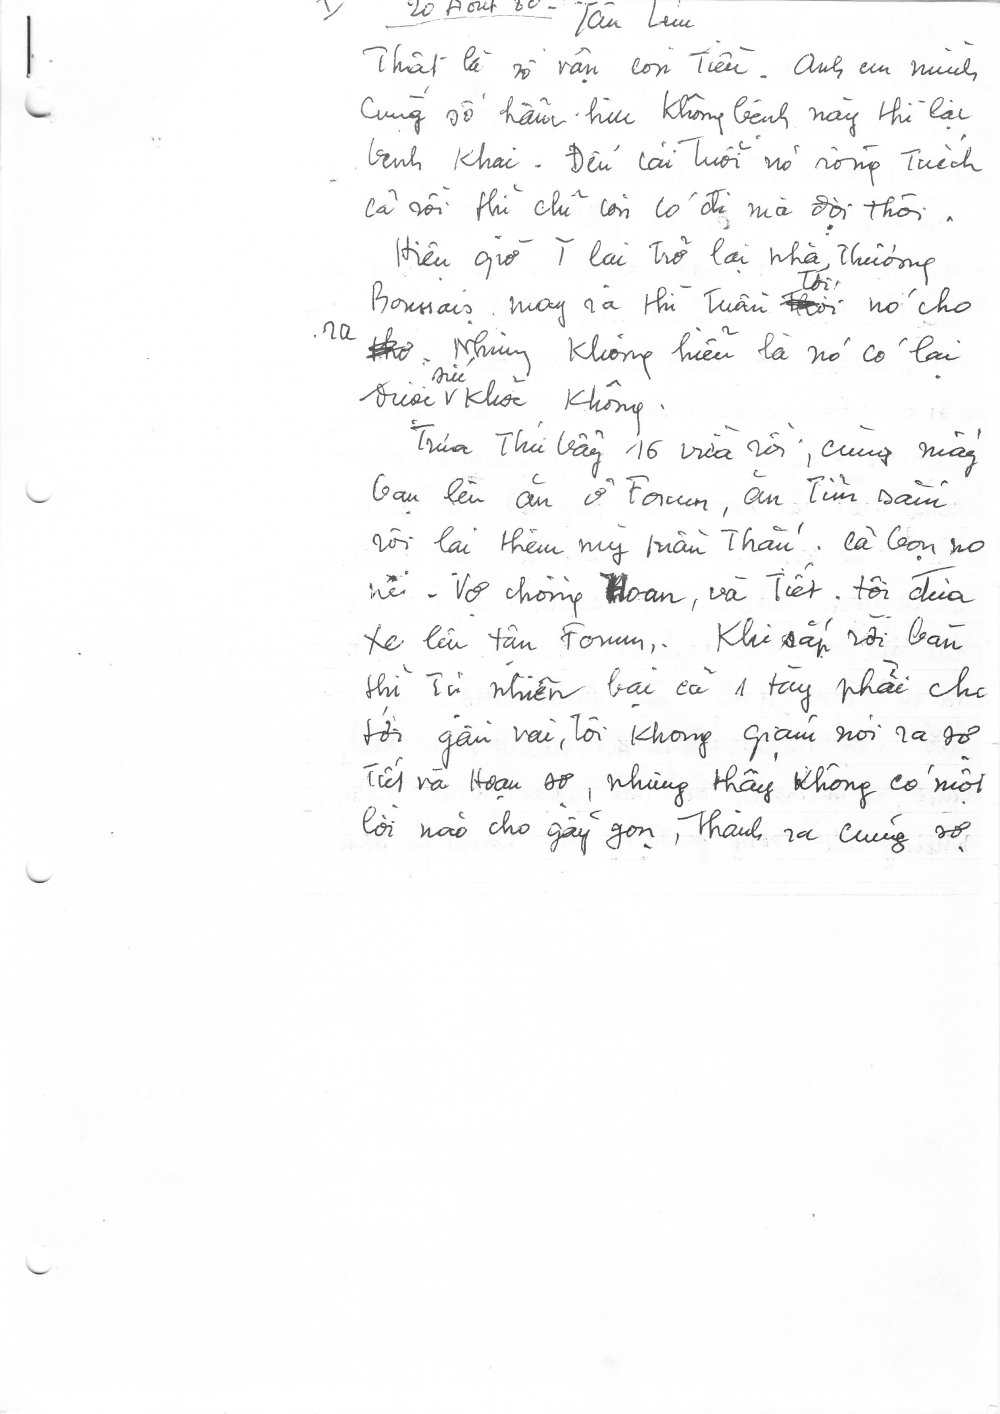 20 Août 80 - Tân
Thật là số vận con Tiến. Anh em mình
cũng số hẩm hiu không bệnh này thì lại
bệnh khai. Đến cái tuổi nó rỗng tuếch
cả rồi thì chỉ còn có đi mà đợi thôi.
Hiện giờ T lại trở lại nhà thương
Boussais, may ra thì tuần tới nó cho
ra. Nhưng không hiểu là nó có lại
được sức khỏe không.
Trưa Thứ bẩy 16 vừa rồi, cùng mấy
bạn lên ăn ở Forum, ăn Tỉm sấm
rồi lại thêm mỳ vằn thắn. Cả bọn no
nê. Vợ chồng Hoan, và Tiết. tôi đưa
xe lên tận Forum. Khi sắp rời bàn
thì tự nhiên bại cả 1 tay phải cho
tới gần vai, Tôi không giám nói ra sợ
Tiết và Hoan sợ, nhưng thấy không có một
lời nào cho gẫy gọn, Thành ra cũng sợ.